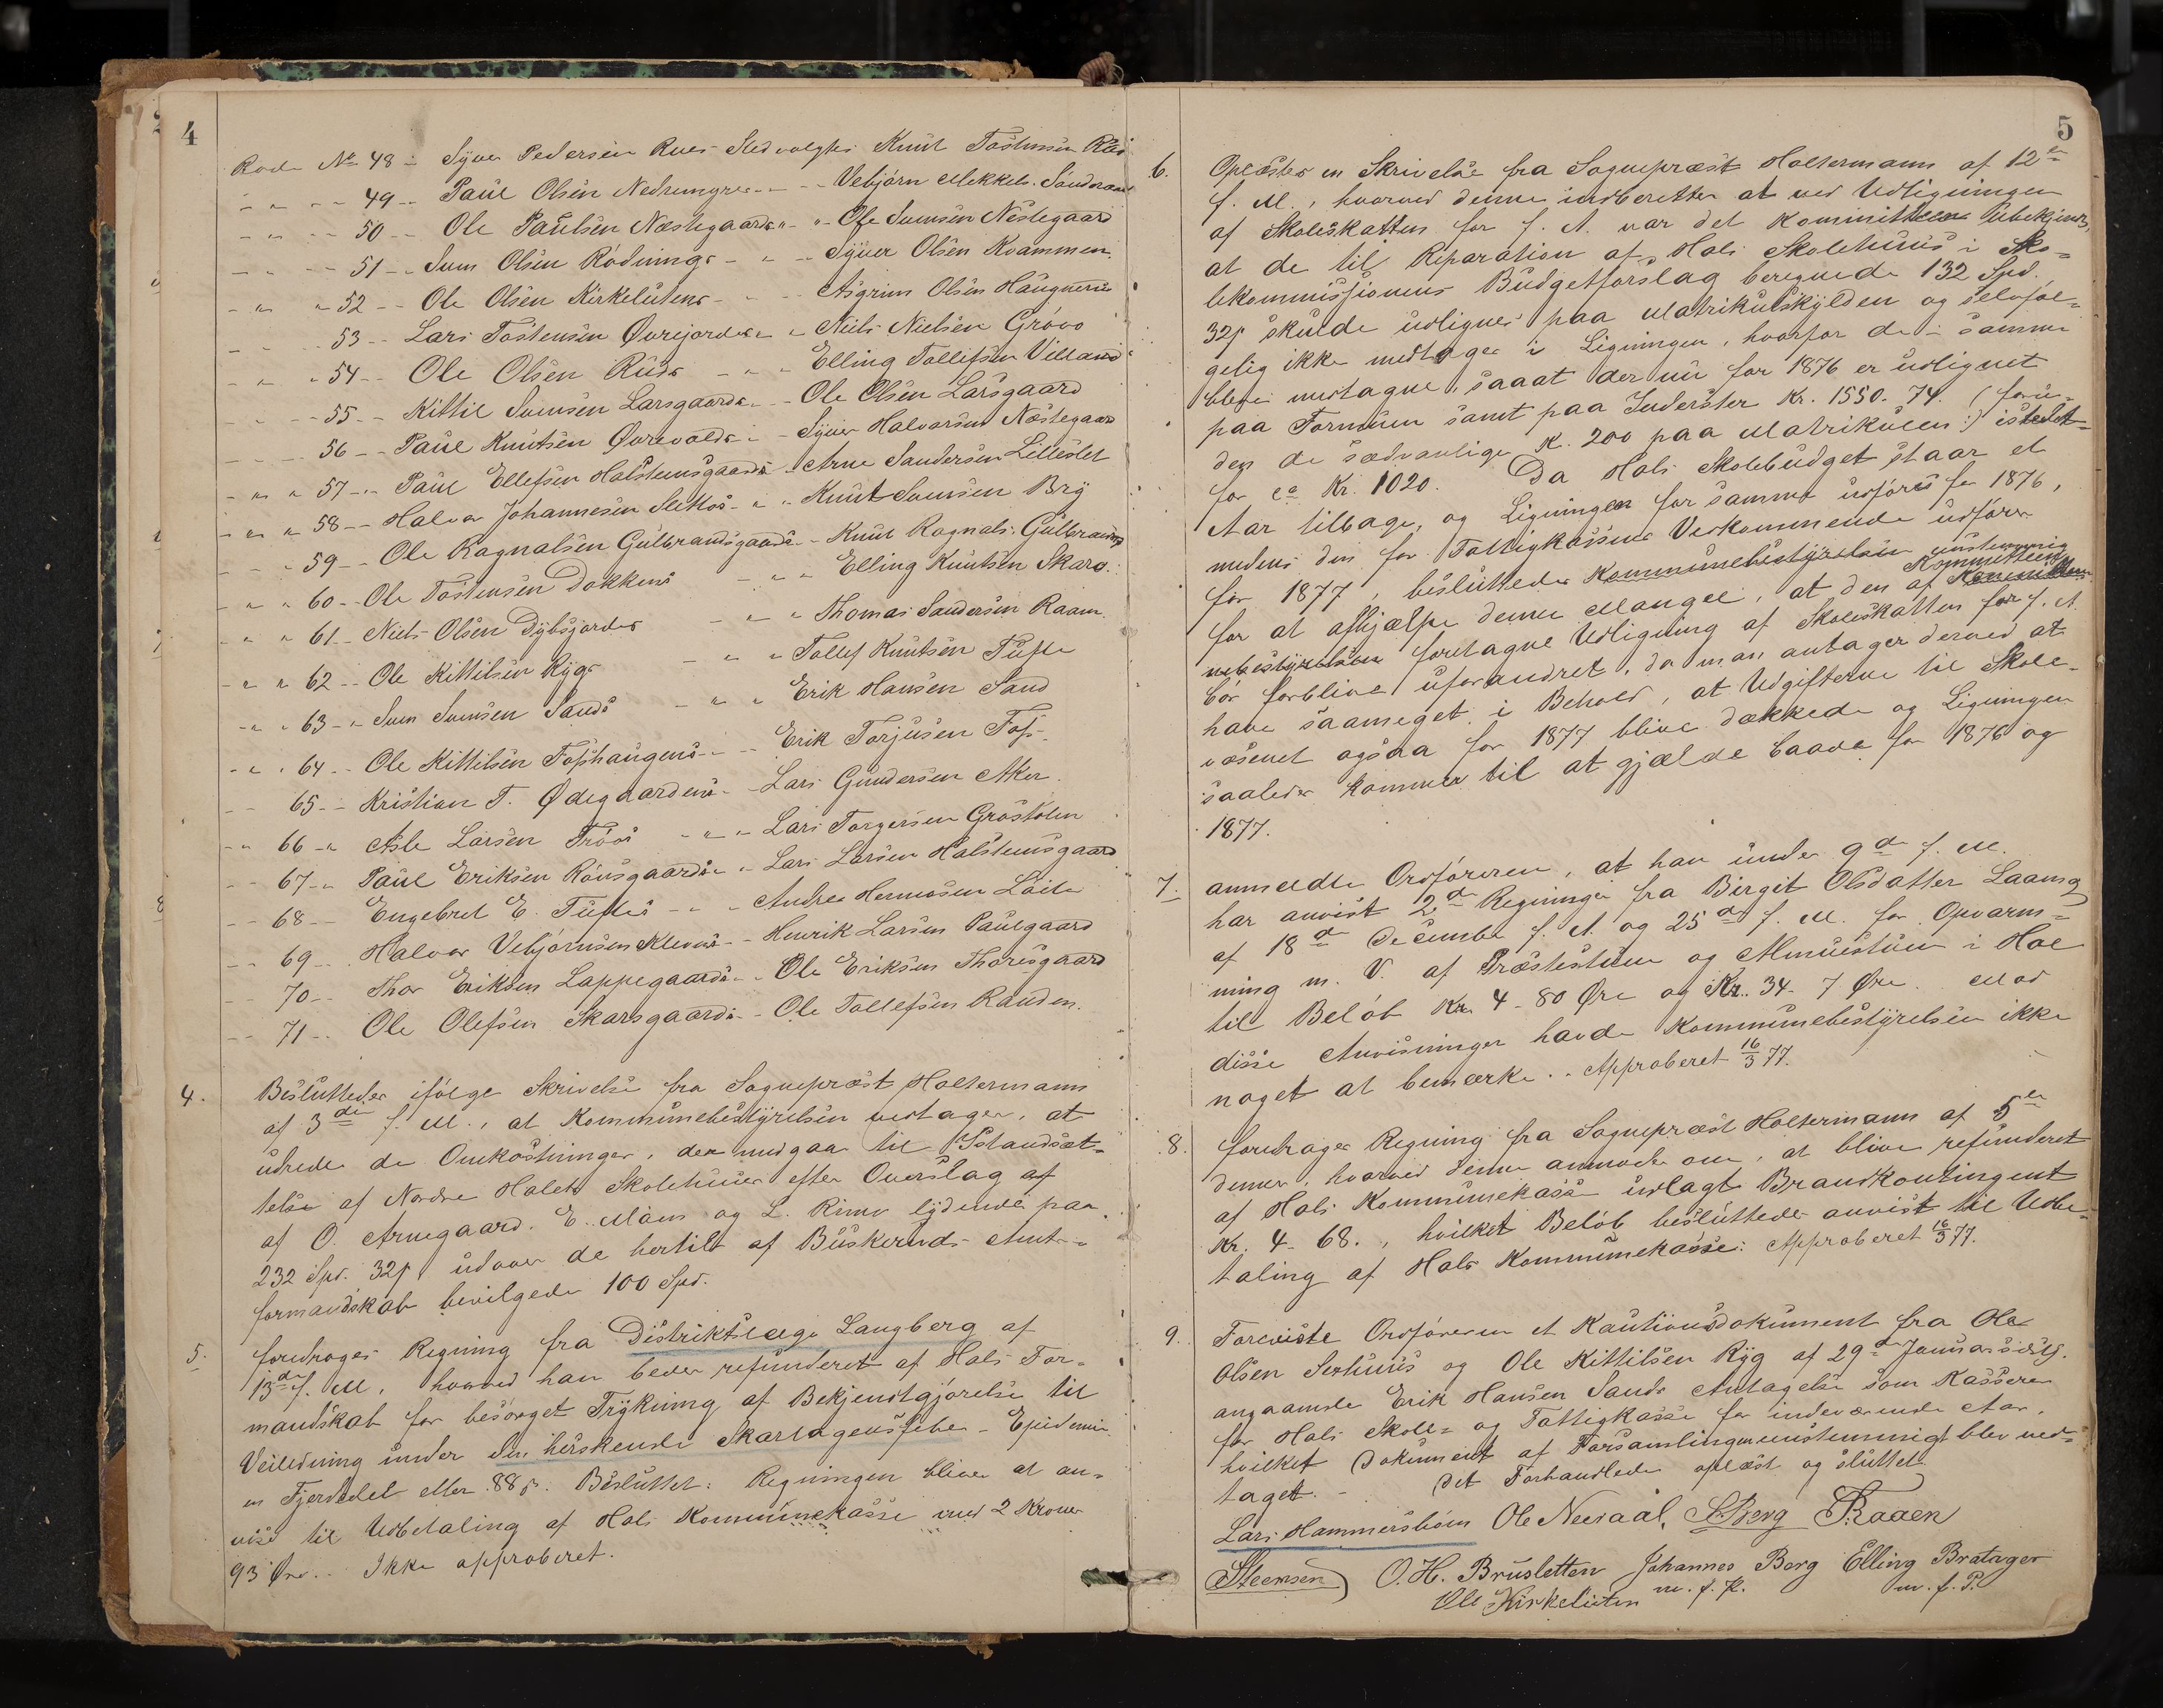 4
Rode No 48 - Syver Pedersen Rues Stedvalgtes Knut Tostensen Rud
- " - - 49 - Paul Olsen Nedremyres - - Vebjörn Mekkels. Sundrand
- " - - 50 - Ole Paulsen Næstegaards " - Ole Svensen Nestegaard
- " - - 51 - Svein Olsen Rödnings - " - Syver Olsen Kvammen.
- " " 52 - Ole Olsen Kirkelutens - - Asgrim Olsen Haugnerud
- - - 53 - Lars Tostensen Øvrejordes " " Niels Nielsen Gröv
- " " 54 - Ole Olsen Ruds - " " Elling Tollefsen Villand
- - - 55 - Kittil Svensen Larsgaards - Ole Olsen Larsgaard
- - - 56 - Paul Knutsen Øvrevolds - - Syver Halvorsen Næstegaard
- " " 57 - Paul Ellefsen Halstensgaards Arne Sandersen Lilleslet
- " " 58 - Halvor Johannesen Slettos - " " Knut Svensen Bry
- - " 59 - Ole Ragnalsen Gulbrandsgaards - Knut Ragnals. Gulbrands
- " " 60 - Ole Tostensen Dokkens - " " Elling Knutsen Skaro.
- " " 61 - Niels Olsen Dybsjordes - " " Thomas Sandersen Raaen
- " " 62 - Ole Kittilsen Rygs - " " Tollef Knutsen Tufte
- " " 63 - " Svein Svensen Sands - " " Erik Hansen Sand
- " " 64 - Ole Kittilsen Fosshaugens - - Erik Torjusen Foss.
- - 65 - Kristian T. Ødegaardens - Lars Gundersen Aker.
- " 66 - " Asle Larsen Tröos - " - Lars Torgersen Gröstølen
- - 67 - " Paul Eriksen Rönsgaards " Lars Larsen Halstensgaard
- - 68 - Engebret E. Tuftes - - Andres Hermosen Löile
- - 69 - Halvor Vebjörnsen Klevens - Henrik Larsen Paulgaard
- - 70 - Thor Eriksen Lappegaards - Ole Eriksen Thoresgaard
- - 71 - Ole Olefsen Skarsgaards - Ole Tollefsen Randen.
4. Besluttedes ifölge Skrivelse fra Sognepræst Holtermann
af 3de f. M., at Kommunebestyrelsen vedtager, at
udrede de Omkostninger, der medgaar til Istandsæt-
telse af Nordre Hols Skolehuus efter Overslag af
af O. Arnegaard. E. Moen og L. Rime lydende paa
232 Spd. 32 s udover de hertil af Buskeruds Amts-
formandskab bevilgede 100 Spd.
5. foredroges Regning fra Distriktslæge Langberg af
13de f. M, hvorved han beder refunderet af Hols For-
mandskab for besörget Trykning af Bekjendtgjörelse til
Veiledning under den herskende Skarlagensfeber - Epidemi
en Fjerdedel eller 88 s. Besluttet: Regningen bliver at an-
vise til Udbetaling af Hols Kommunekasse med 2 Kroner
93 Øre. Ikke approberet.
5
6. Oplæstes en Skrivelse fra Sognepræst Holtermann af 12te
f. M., hvorved denne indberetter at ved Udligningen
af Skoleskatten for f. A. var det Kommitteen ubekjendt,
at de til Reparation af Hols Skolehuus i Sko-
lekommissionens Budgetforslag beregnede 132 Spd.
32 s skulde udlignes paa Matrikulskylden og selvföl-
gelig ikke medtages i Ligningen, hvorfor de i samme
bleve medtagne, saaat der nu for 1876 er udlignet
paa Formuen samt paa Inderster Kr. 1550. 74. (foru-
den de sædvanlige K. 200 paa Matrikulen:) istedet-
for ca Kr. 1020. Da Hols Skolebudget staar et
Aar tilbage, og Ligningen for samme udföres for 1876,
medens den for Fattigkassens Vedkommende udföres
for 1877, besluttede Kommunebestyrelsen enstemmig
for at afhjælpe denne Mangel, at den af Kommitteen Kommu
nebestyrelsen foretagne Udligning af Skoleskatten for f. A.
bör forblive uforandret, da man antager derved at
have saameget i Behold, at Udgifterne til Skole-
væsenet ogsaa for 1877 blive dækkede og Ligningen
saaledes kommer til at gjælde baade for 1876 og
1877.
7. anmeldte Ordföreren, at han under 9de f. M.
har anvist 2de Regninger fra Birgit Olsdatter Laaug
af 18de December f. A. og 25de f. M. for Opvarm-
ning m. V. af Præstestuen og Almuestuen i Hol
til Belöb Kr. 4 - 80 Øre og Kr. 34 - 7 Øre. Mod
disse Anvisninger havde Kommunebestyrelsen ikke
noget at bemærke. - Approberet 16/3 77.
8. foredroges Regning fra Sognepræst Holtermann af 5te
dennes, hvorved denne anmoder om, at blive refunderet
af Hols Kommunekasse udlagt Brandkontingent
Kr. 4 - 68., hvilket Belöb besluttedes anvist til Udbe-
taling af Hols Kommunekasse: Approberet 16/3 77.
9. Foreviste Ordföreren et Kautionsdokument fra Ole
Olsen Serhuus og Ole Kittilsen Ryg af 29de Januar sidstl.
angaaende Erik Hansen Sands Antagelse som Kasserer
for Hols Skole- og Fattigkasse for indeværende Aar,
hvilket Dokument af Forsamlingen enstemmigt blev ved-
taget. - Det Forhandlede oplæst og sluttet.
Lars Hammersböen Ole Neeraal, S. Berg T. Raaen
Steensen O. H. Brusletten Johannes Berg Elling Bratager
Ole Kirkeluten m. f. P. m. f. P.